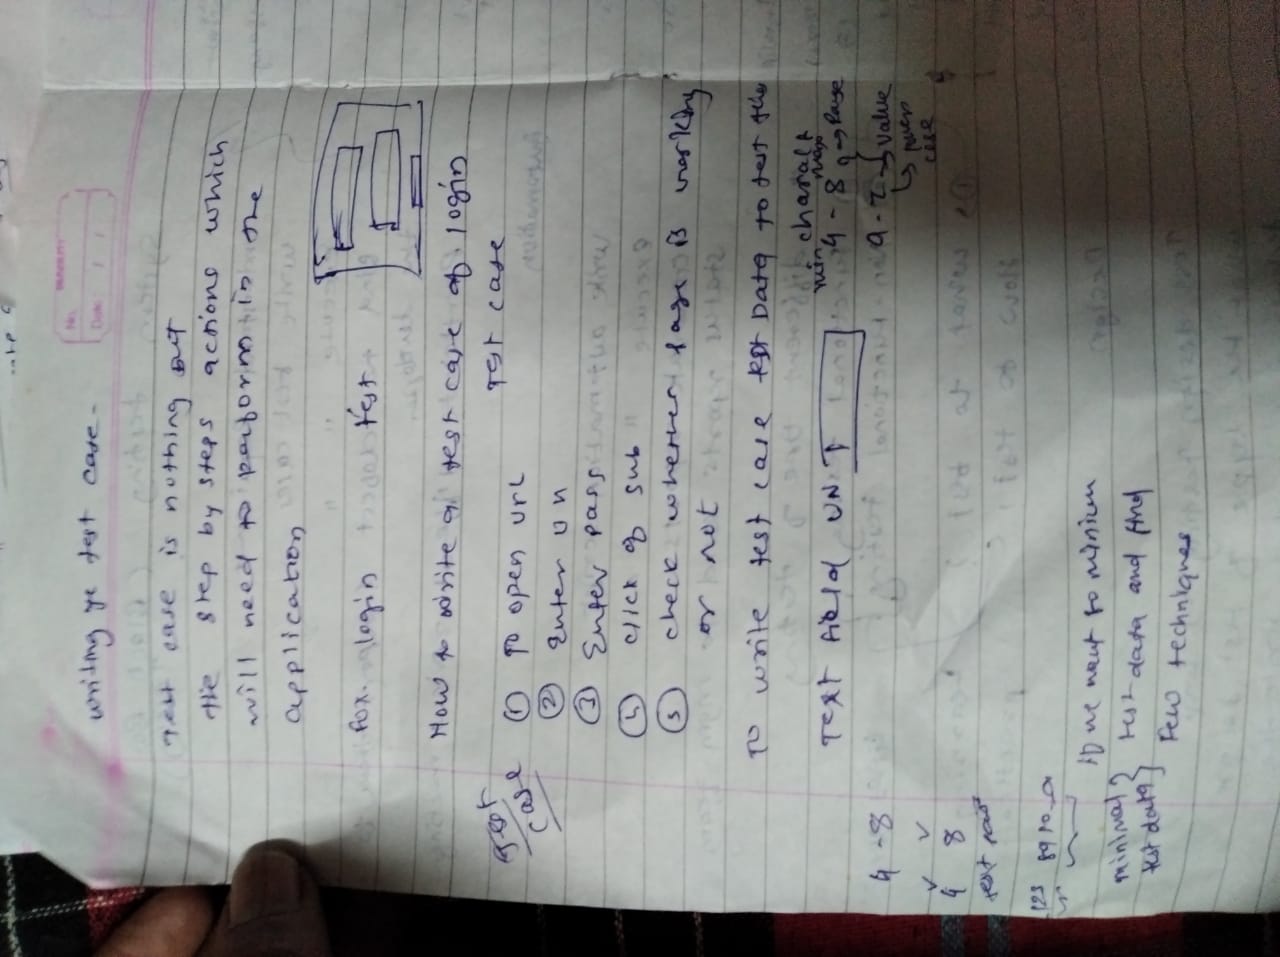 writing ye test case-
No.
Date: / /
Test case is nothing but
the step by steps actions which
will need to perform in the
application
fox. login test
How to write a test case of login
Test case
Test
case
① To open url
② Enter un
③ Enter pass
④ click of sub
⑤ check whether page is working
or not
To write test case test Data to test this
charact
min max
Text field UN 4 - 8 → Range
a - z → value
→ lower
case
4 - 8
✓ ✓
4 8
test
123 8910
if we want to minium
minimal
test data
test data and find
few techniques